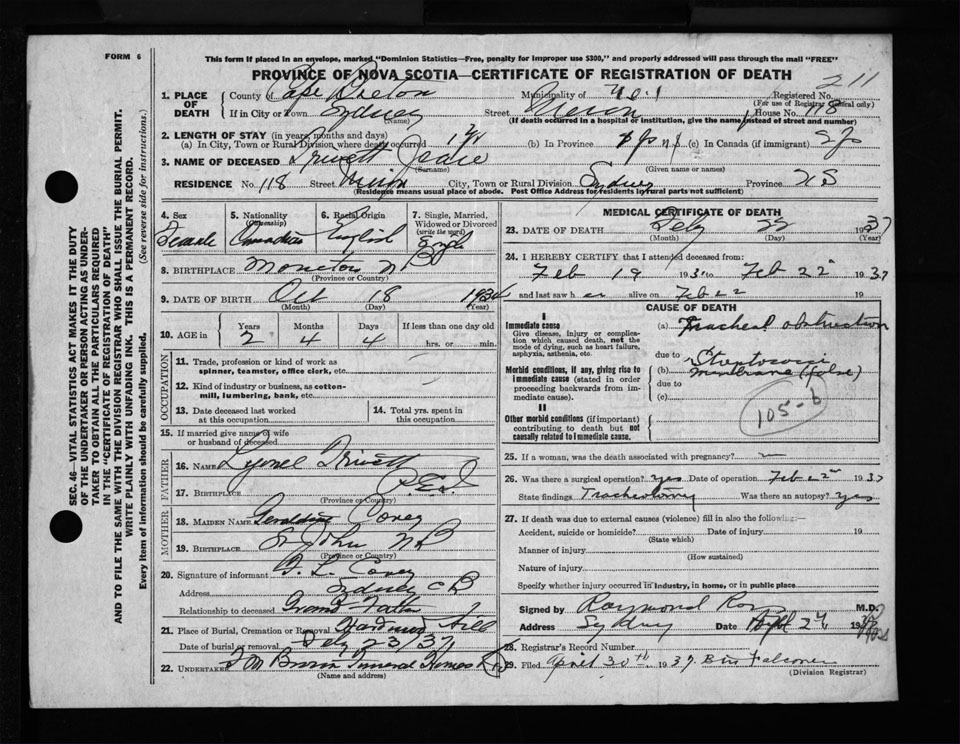 FORM 6
This form if placed in an envelope, marked "Dominion Statistics—Free, penalty for improper use $300," and properly addressed will pass through the mail "FREE"
PROVINCE OF NOVA SCOTIA—CERTIFICATE OF REGISTRATION OF DEATH
211
1. PLACE OF DEATH
County of Cape Breton Municipality of Registered No.
(For use of Registrar General only)
If in City or Town Sydney Street House No. 118
(Name) (If death occurred in a hospital or institution, give the name instead of street and number)
2. LENGTH OF STAY (in years, months and days)
(a) In City, Town or Rural Division where death occurred (b) In Province (c) In Canada (if immigrant)
3. NAME OF DECEASED
(Surname) (Given name or names)
RESIDENCE No. 118 Street City, Town or Rural Division Sydney Province N S
(Residence means usual place of abode. Post Office Address for residents by rural parts not sufficient)
4. Sex
Female
5. Nationality
(Citizenship)
Canadian
6. Racial Origin
English
7. Single, Married, Widowed or Divorced
(write the word)
Single
8. BIRTHPLACE Moncton N B
(Province or Country)
9. DATE OF BIRTH Oct 18 1934
(Month) (Day) (Year)
10. AGE in
Years Months Days If less than one day old
2 4 4 hrs. or min.
OCCUPATION
11. Trade, profession or kind of work as spinner, teamster, office clerk, etc.
12. Kind of industry or business, as cotton-mill, lumbering, bank, etc.
13. Date deceased last worked at this occupation
14. Total yrs. spent in this occupation
15. If married give name of wife or husband of deceased
FATHER
16. NAME Lyonel Trivett
17. BIRTHPLACE P.E.I
(Province or Country)
MOTHER
18. MAIDEN NAME Geraldine Covey
19. BIRTHPLACE St John N B
(Province or Country)
20. Signature of informant L. Covey
Address Sydney C B
Relationship to deceased Grand-Father
21. Place of Burial, Cremation or Removal Hardwood Hill
Date of burial or removal Feby 23/37
22. UNDERTAKER Funeral Homes
(Name and address)
MEDICAL CERTIFICATE OF DEATH
23. DATE OF DEATH Feby 22 1937
(Month) (Day) (Year)
24. I HEREBY CERTIFY that I attended deceased from:
Feb 19 1937 to Feb 22 1937
and last saw her alive on Feb 22 19
CAUSE OF DEATH
I
Immediate cause
Give disease, injury or complication which caused death, not the mode of dying, such as heart failure, asphyxia, asthenia, etc.
(a) Tracheal obstruction
due to
Morbid conditions, if any, giving rise to immediate cause (stated in order proceeding backwards from immediate cause).
(b) Streptococci membrane (false)
due to
(c)
105-b
II
Other morbid conditions (if important) contributing to death but not causally related to immediate cause.
25. If a woman, was the death associated with pregnancy? —
26. Was there a surgical operation? yes Date of operation Feb 22 1937
State findings Tracheotomy Was there an autopsy? yes
27. If death was due to external causes (violence) fill in also the following:—
Accident, suicide or homicide? Date of injury 19
(State which)
Manner of injury
(How sustained)
Nature of injury
Specify whether injury occurred in industry, in home, or in public place
Signed by Raymond M.D.
Address Sydney Date
28. Registrar's Record Number
29. Filed April 30th 1937 Falconer
(Division Registrar)
SEC. 46—VITAL STATISTICS ACT MAKES IT THE DUTY
OF THE UNDERTAKER OR PERSON ACTING AS UNDER-
TAKER TO OBTAIN ALL THE PARTICULARS REQUIRED
IN THE "CERTIFICATE OF REGISTRATION OF DEATH"
AND TO FILE THE SAME WITH THE DIVISION REGISTRAR WHO SHALL ISSUE THE BURIAL PERMIT.
WRITE PLAINLY WITH UNFADING INK. THIS IS A PERMANENT RECORD.
Every item of information should be carefully supplied. (See reverse side for instructions.)